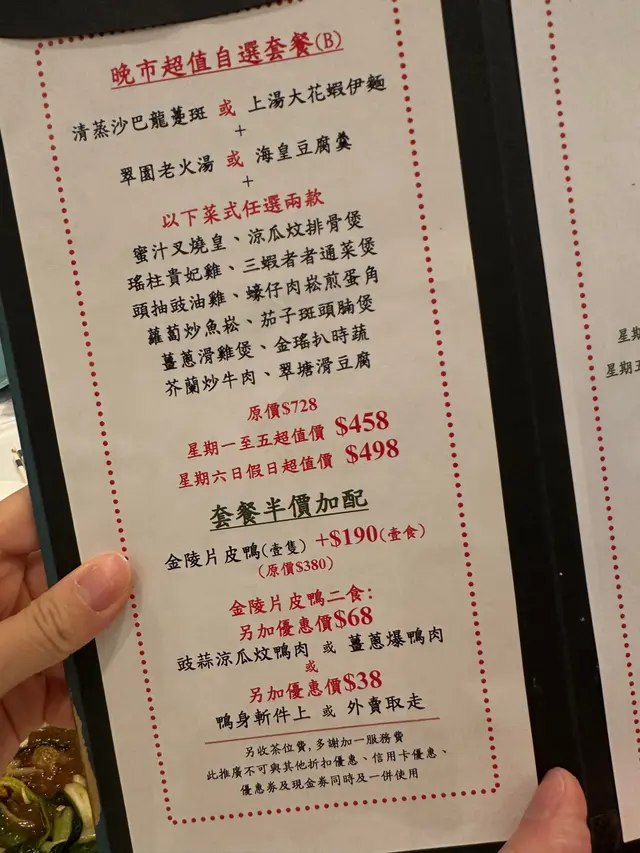 晚市超值自選套餐(B)
清蒸沙巴龍躉斑 或 上湯大花蝦伊麵
+
翠園老火湯 或 海皇豆腐羹
+
以下菜式任選兩款
蜜汁叉燒皇、涼瓜炆排骨煲
瑤柱貴妃雞、三蝦者者通菜煲
頭抽豉油雞、蠔仔肉崧煎蛋角
蘿蔔炒魚崧、茄子斑頭腩煲
薑蔥滑雞煲、金瑤扒時蔬
芥蘭炒牛肉、翠塘滑豆腐
原價$728
星期一至五超值價 $458
星期六日假日超值價 $498
套餐半價加配
金陵片皮鴨(壹隻) +$190(壹食)
(原價$380)
金陵片皮鴨二食:
另加優惠價$68
豉蒜涼瓜炆鴨肉 或 薑蔥爆鴨肉
或
另加優惠價$38
鴨身斬件上 或 外賣取走
另收茶位費,多謝加一服務費
此推廣不可與其他折扣優惠、信用卡優惠、
優惠券及現金券同時及一併使用
星期
星期五